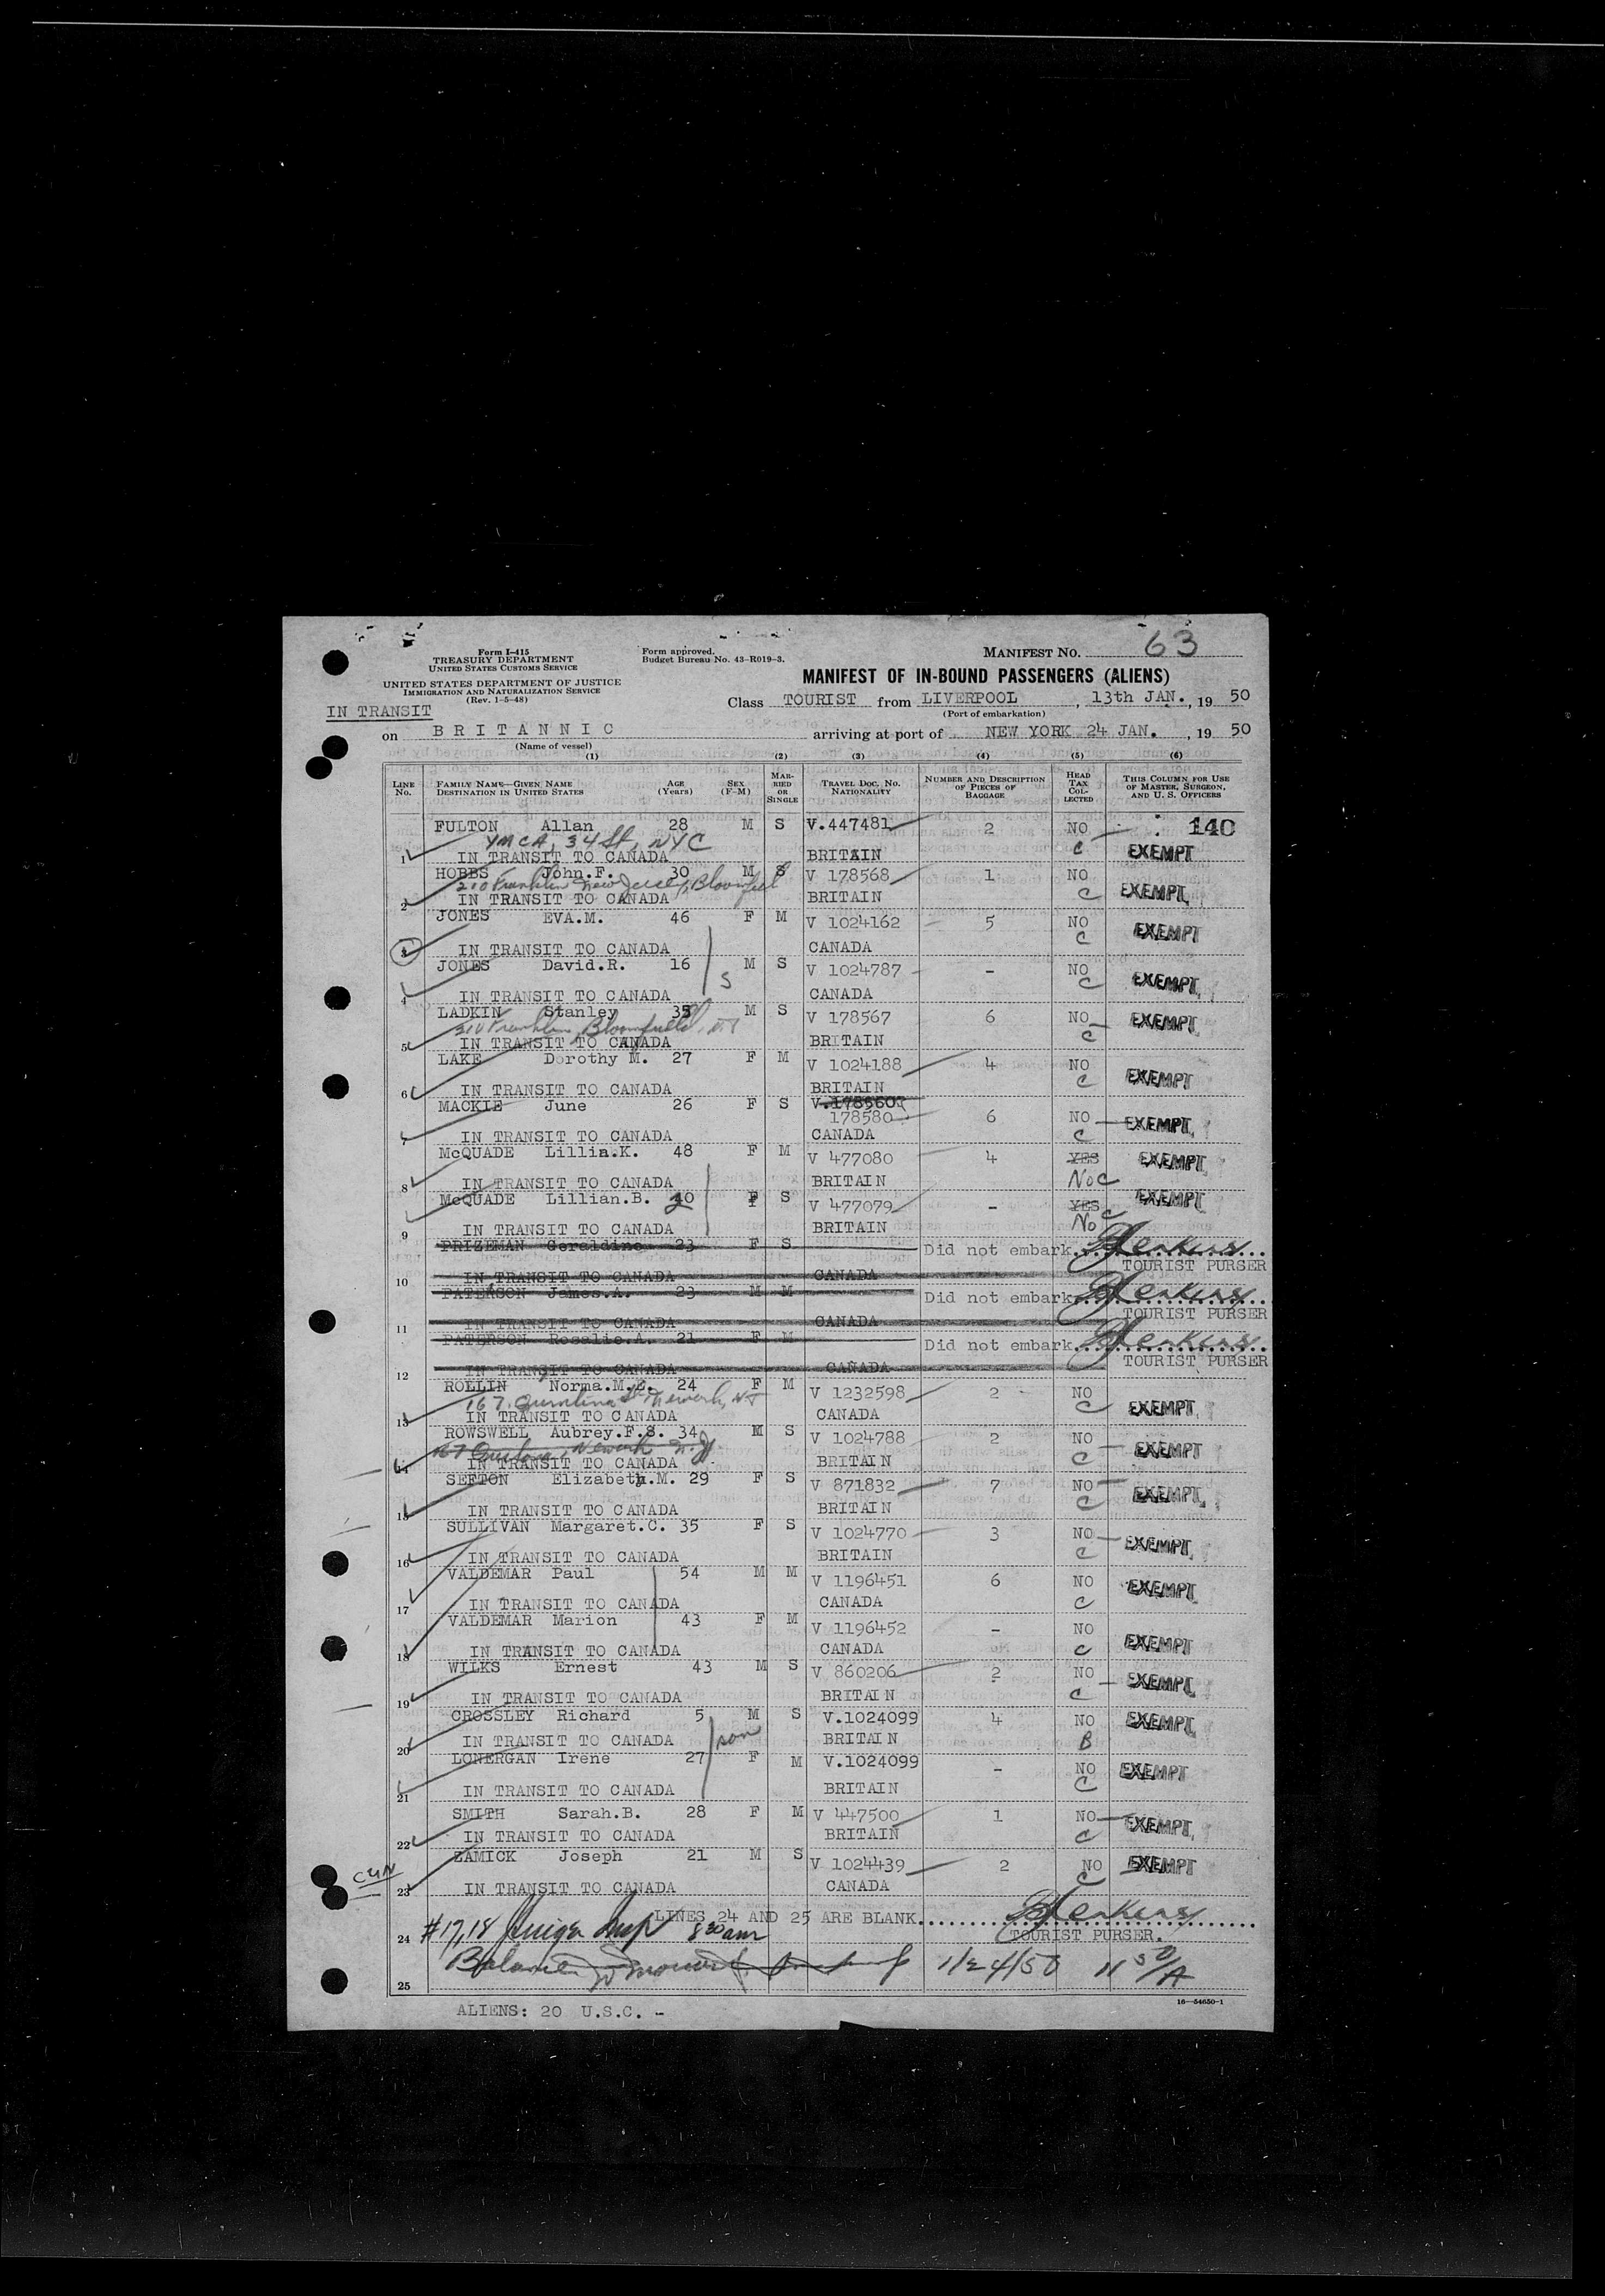 Form I-415
TREASURY DEPARTMENT
UNITED STATES CUSTOMS SERVICE
UNITED STATES DEPARTMENT OF JUSTICE
IMMIGRATION AND NATURALIZATION SERVICE
(Rev. 1-5-48)
Form approved.
Budget Bureau No. 43-R019-3.
MANIFEST NO. 63
MANIFEST OF IN-BOUND PASSENGERS (ALIENS)
IN TRANSIT
Class TOURIST from LIVERPOOL, 13th JAN., 19 50
(Port of embarkation)
on BRITANNIC arriving at port of NEW YORK 24 JAN., 19 50
(Name of vessel)
(1) (2) (3) (4) (5) (6)
LINE No. FAMILY NAME—GIVEN NAME DESTINATION IN UNITED STATES AGE (Years) SEX (F-M) MARRIED OR SINGLE TRAVEL DOC. NO. NATIONALITY NUMBER AND DESCRIPTION OF PIECES OF BAGGAGE HEAD TAX COLLECTED THIS COLUMN FOR USE OF MASTER, SURGEON, AND U. S. OFFICERS
FULTON Allan 28 M S V.447481 2 NO 140
YMCA, 34 St, NYC
1 IN TRANSIT TO CANADA BRITAIN C EXEMPT
HOBBS John.F. 30 M S V 178568 1 NO
210 Franklin New Jersey, Bloomfield
2 IN TRANSIT TO CANADA BRITAIN C EXEMPT
JONES EVA.M. 46 F M V 1024162 5 NO
3 IN TRANSIT TO CANADA CANADA C EXEMPT
JONES David.R. 16 S M S V 1024787 - NO
4 IN TRANSIT TO CANADA CANADA C EXEMPT
LADKIN Stanley 35 M S V 178567 6 NO
210 Franklin, Bloomfield, NJ
5 IN TRANSIT TO CANADA BRITAIN C EXEMPT
LAKE Dorothy M. 27 F M V 1024188 4 NO
6 IN TRANSIT TO CANADA BRITAIN C EXEMPT
MACKIE June 26 F S 178580 6 NO
7 IN TRANSIT TO CANADA CANADA C EXEMPT
McQUADE Lillia.K. 48 F M V 477080 4 YES
8 IN TRANSIT TO CANADA BRITAIN No C EXEMPT
McQUADE Lillian.B. F S V 477079 - YES C
9 IN TRANSIT TO CANADA BRITAIN No EXEMPT
PRIZEMAN Geraldine 23 F S Did not embark. Jenkins
10 IN TRANSIT TO CANADA CANADA TOURIST PURSER
PATERSON James.A. 23 M M Did not embark. Jenkins
11 IN TRANSIT TO CANADA CANADA TOURIST PURSER
PATERSON Rosalie.A. 21 F M Did not embark. Jenkins
12 IN TRANSIT TO CANADA CANADA TOURIST PURSER
ROLLIN Norma.M.S. 24 F M V 1232598 2 NO
167 Newark, NJ
13 IN TRANSIT TO CANADA CANADA C EXEMPT
ROWSWELL Aubrey.F.S. 34 M S V 1024788 2 NO
Newark N.J.
14 IN TRANSIT TO CANADA BRITAIN C EXEMPT
SEFTON Elizabeth.M. 29 F S V 871832 7 NO
15 IN TRANSIT TO CANADA BRITAIN C EXEMPT
SULLIVAN Margaret.C. 35 F S V 1024770 3 NO
16 IN TRANSIT TO CANADA BRITAIN C EXEMPT
VALDEMAR Paul 54 M M V 1196451 6 NO
17 IN TRANSIT TO CANADA CANADA C EXEMPT
VALDEMAR Marion 43 F M V 1196452 - NO
18 IN TRANSIT TO CANADA CANADA C EXEMPT
WILKS Ernest 43 M S V 860206 2 NO
19 IN TRANSIT TO CANADA BRITAIN C EXEMPT
CROSSLEY Richard 5 son M S V.1024099 4 NO
20 IN TRANSIT TO CANADA BRITAIN B EXEMPT
LONERGAN Irene 27 F M V.1024099 - NO
21 IN TRANSIT TO CANADA BRITAIN C EXEMPT
SMITH Sarah.B. 28 F M V 447500 1 NO
22 IN TRANSIT TO CANADA BRITAIN C EXEMPT
ZAMICK Joseph 21 M S V 1024439 2 NO
23 IN TRANSIT TO CANADA CANADA C EXEMPT
LINES 24 AND 25 ARE BLANK. Jenkins
24 #17,18 Insp 8 30 am TOURIST PURSER.
25 Balance 1/24/50 11 50/A
16-54650-1
ALIENS: 20 U.S.C. -